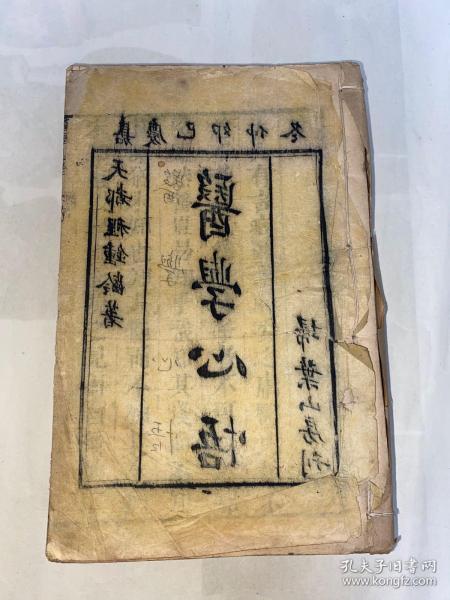 嘉慶己卯仲冬
掃葉山房刊
醫學心悟
天都程鐘齡著
孔夫子旧书网
www.kongfz.com